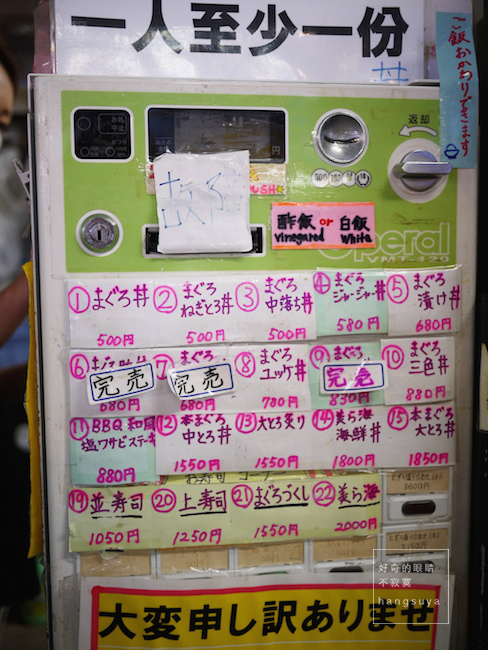 一人至少一份
丼
ご飯おかわりできます
お札
中止
おつり
円
返却
PUSH
500 100 50 10
酢飯 or 白飯
vinegared White
Operal
VMT-420
① まぐろ丼 500円
② まぐろ ねぎとろ丼 500円
③ まぐろ 中落ち丼 500円
④ まぐろ ジャージャー丼 580円
⑤ まぐろ 漬け丼 680円
⑥ 完売 680円
⑦ まぐろ 完売 680円
⑧ まぐろ ユッケ丼 780円
⑨ まぐろ 完売 830円
⑩ まぐろ 三色丼 880円
⑪ BBQ 和風 塩ワサビステーキ 880円
⑫ 本まぐろ 中とろ丼 1550円
⑬ 大とろ炙り 1550円
⑭ 美ら海 海鮮丼 1800円
⑮ 本まぐろ 大とろ丼 1850円
お寿司 コーナー
⑲ 並寿司 1050円
⑳ 上寿司 1250円
㉑ まぐろづくし 1550円
㉒ 美ら海 2000円
大変申し訳ありませ
好奇的眼睛
不寂寞
hangsuya